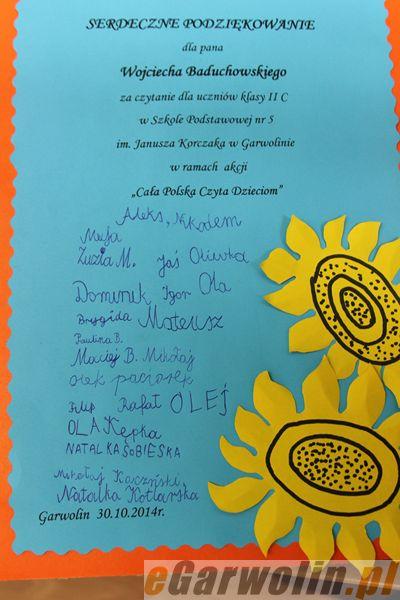 SERDECZNE PODZIĘKOWANIE
dla pana
Wojciecha Baduchowskiego
za czytanie dla uczniów klasy II C
w Szkole Podstawowej nr 5
im. Janusza Korczaka w Garwolinie
w ramach akcji
„Cała Polska Czyta Dzieciom”
Aleks, Nikodem
Maja
Zuzia M. Jaś Oliwka
Dominik Igor Ola
Brygida Mateusz
Paulina B.
Maciej B. Mikołaj
Olek
Filip Rafał OLEJ
OLA Kępka
NATALKA SOBIESKA
Mikołaj
Natalka Kotlarska
Garwolin 30.10.2014r.
eGarwolin.pl